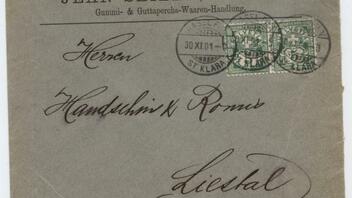 Gummi- & Guttapercha-Waaren-Handlung.
30 XI.01
ST. KLARA
ST. KLARA
Herren
Handschin & Ronus
Liestal